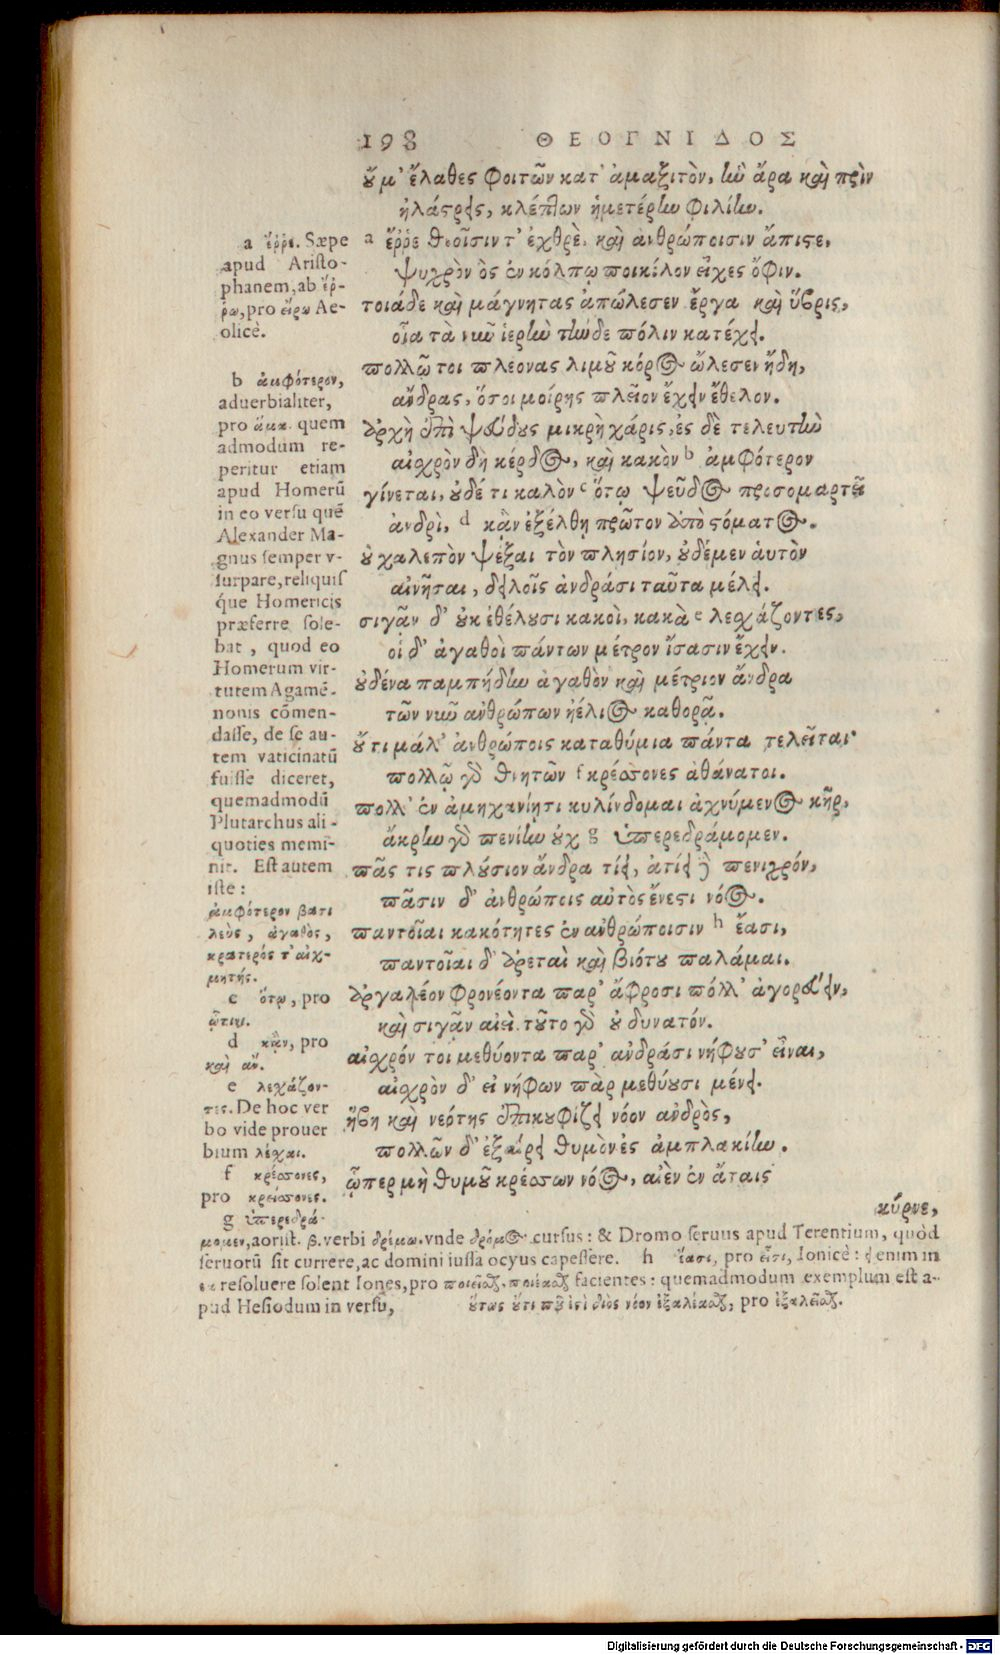 198 ΘΕΟΓΝΙΔΟΣ
οὔ μ' ἔλαθες φοιτῶν κατ' ἀμαξιτὸν, ἣν ἄρα καὶ πρὶν
ἠλάστρεις, κλέπτων ἡμετέρην φιλίην.
a ἔῤῥε θεοῖσιν τ' ἐχθρὲ, καὶ ἀνθρώποισιν ἄπιστε,
ψυχρὸν ὃς ἐν κόλπῳ ποικίλον εἶχες ὄφιν.
τοιάδε καὶ μάγνητας ἀπώλεσεν ἔργα καὶ ὕβρις,
οἷα τὰ νῦν ἱερὴν τήνδε πόλιν κατέχει.
πολλῷ τοι πλέονας λιμοῦ κόρος ὤλεσεν ἤδη,
ἄνδρας, ὅσοι μοίρης πλεῖον ἔχειν ἔθελον.
ἀρχὴ ἐπὶ ψεύδους μικρὴ χάρις, ἐς δὲ τελευτὴν
αἰσχρὸν δὴ κέρδος, καὶ κακὸν b ἀμφότερον
γίνεται, οὐδέ τι καλὸν c ὅτῳ ψεῦδος προσομαρτεῖ
ἀνδρὶ, d κᾂν ἐξέλθῃ πρῶτον ἀπὸ στόματος.
οὐ χαλεπὸν ψέξαι τὸν πλησίον, οὐδέμεν ἁυτὸν
αἰνῆσαι, δειλοῖς ἀνδράσι ταῦτα μέλει.
σιγᾶν δ' οὐκ ἐθέλουσι κακοὶ, κακὰ e λεσχάζοντες,
οἱ δ' ἀγαθοὶ πάντων μέτρον ἴσασιν ἔχειν.
οὐδένα παμπήδην ἀγαθὸν καὶ μέτριον ἄνδρα
τῶν νῦν ἀνθρώπων ἠέλιος καθορᾷ.
οὔτι μάλ' ἀνθρώποις καταθύμια πάντα τελεῖται·
πολλῷ γὸ θνητῶν f κρέσσονες ἀθάνατοι.
πόλλ' ἐν ἀμηχανίῃσι κυλίνδομαι ἀχνύμενος κῆρ,
ἄκρην γὸ πενίην οὐχ g ὑπερεδράμομεν.
πᾶς τις πλούσιον ἄνδρα τίει, ἀτίει δὲ πενιχρόν,
πᾶσιν δ' ἀνθρώποις αὐτὸς ἔνεστι νόος.
παντοῖαι κακότητες ἐν ἀνθρώποισιν h ἔασι,
παντοῖαι δ' ἀρεταὶ καὶ βιότου παλάμαι.
ἀργαλέον φρονέοντα παρ' ἄφροσι πόλλ' ἀγορεύειν,
καὶ σιγᾶν αἰεὶ. τοῦτο γὸ οὐ δυνατόν.
αἰσχρόν τοι μεθύοντα παρ' ἀνδράσι νήφουσ' εἶναι,
αἰσχρὸν δ' εἰ νήφων πὰρ μεθύουσι μένει.
ἥβη καὶ νεότης ἐπικουφίζει νόον ἀνδρὸς,
πολλῶν δ' ἐξαίρει θυμὸν ἐς ἀμπλακίην.
ᾧπερ μὴ θυμοῦ κρέσσων νόος, αἰὲν ἐν ἄταις
κύρνε,
a ἔῤῥε. Sæpe
apud Aristo-
phanem, ab ἔῤ-
ῥω, pro εἴρω Ae-
olicè.
b ἀμφότερον,
aduerbialiter,
pro ἅμα. quem
admodum re-
peritur etiam
apud Homerū
in eo versu quē
Alexander Ma-
gnus semper v-
surpare, reliquis
que Homericis
præferre sole-
bat, quod eo
Homerum vir-
tutem Agamē-
nonis cōmen-
dasse, de se au-
tem vaticinatū
fuisse diceret,
quemadmodū
Plutarchus ali-
quoties memi-
nit. Est autem
iste:
ἀμφότερον βασι
λεὺς, ἀγαθὸς,
κρατερός τ' αἰχ-
μητής.
c ὅτῳ, pro
ᾧτινι.
d κᾂν, pro
καὶ ἂν.
e λεχάζον-
τες. De hoc ver
bo vide prouer
bium λέσχαι.
f κρέσσονες,
pro κρείσσονες.
g ὑπερεδρά-
μομεν, aorist. β. verbi δρέμω. vnde δρόμος cursus: & Dromo seruus apud Terentium, quòd
seruorū sit currere, ac domini iussa ocyus capessere. h ἔασι, pro εἶσι, Ionicè: ει enim in
εα resoluere solent Iones, pro ποιεῖσθαι, ποιέασθαι facientes: quemadmodum exemplum est a-
pud Hesiodum in versu, οὕτως οὔτι πῶ ἐστὶ διὸς νόον ἐξαλέασθαι, pro ἐξαλεῖσθαι.
Digitalisierung gefördert durch die Deutsche Forschungsgemeinschaft - DFG